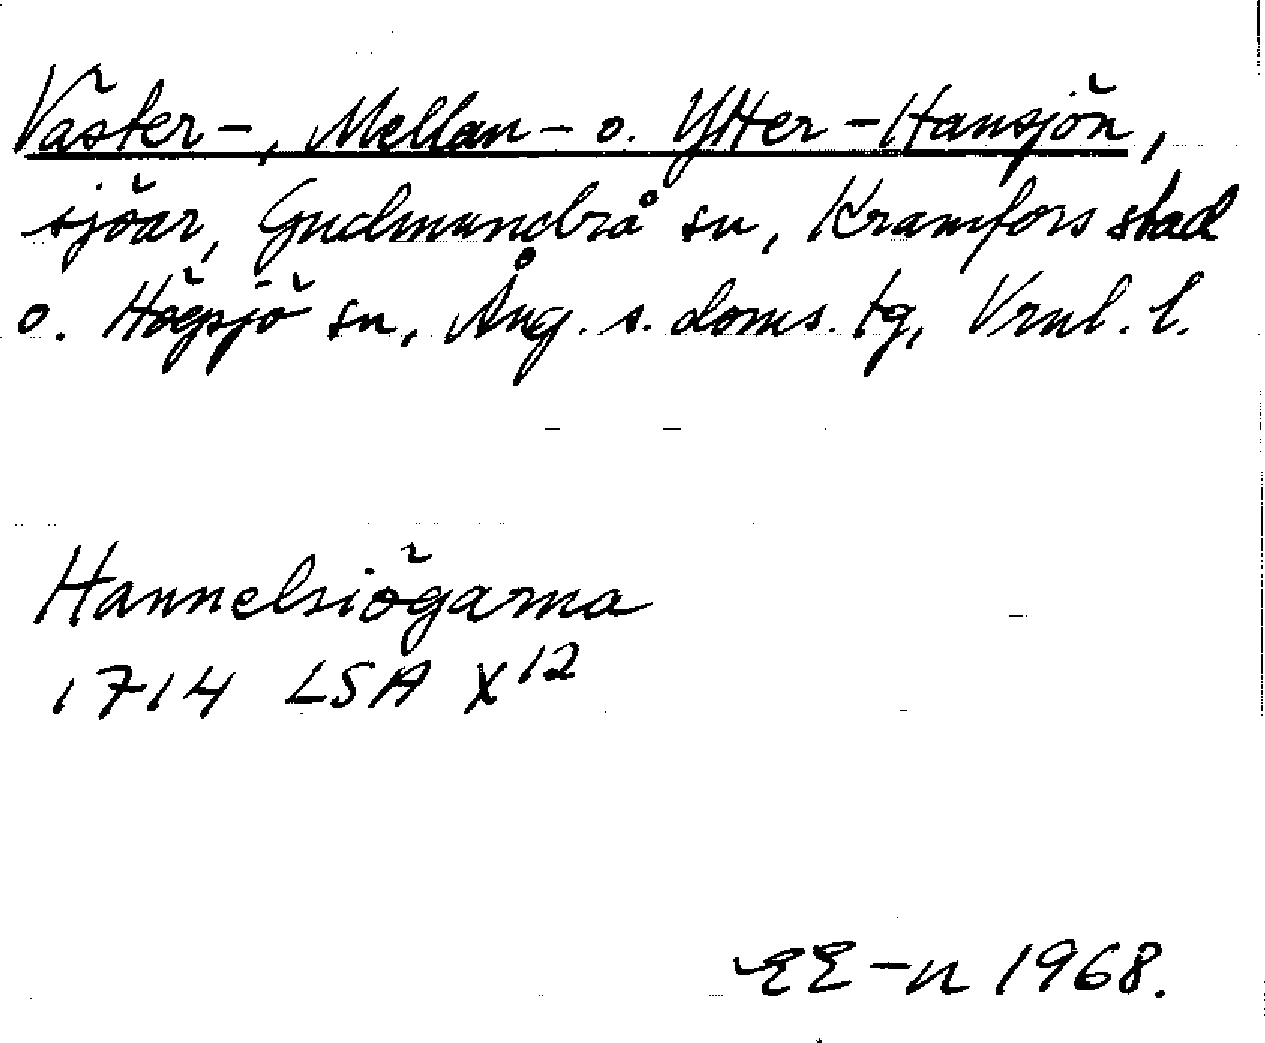 Väster-, Mellan- o. Ytter-Hansjön,
sjöar, Gudmundrå sn, Kramfors stad
o. Högsjö sn, Ång. s. doms. tg, Vrnl. l.
Hannelsiögarna
1714 LSA X¹²
EE-n 1968.